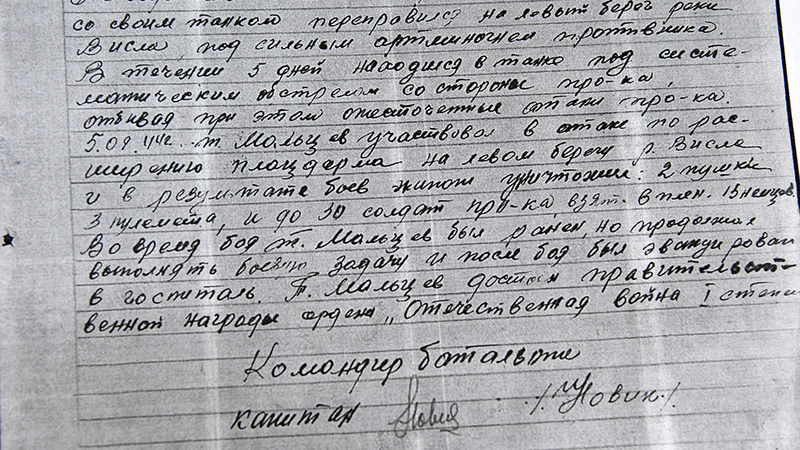 со своим танком переправился на левый берег реки
Висла, под сильным артминогнем противника.
В течении 5 дней находился в танке под систе-
матическим обстрелом со стороны про-ка,
отбивая при этом ожесточенные атаки про-ка.
5.09.44г. т. Мальцев участвовал в атаке по рас-
ширению плацдарма на левом берегу р. Висла
и в результате боев экипаж уничтожил: 2 пушки
3 пулемета, и до 30 солдат про-ка взят. в плен. 15 немцев.
Во время боя т. Мальцев был ранен, но продолжал
выполнять боевую задачу и после боя был эвакуирован
в госпиталь. Т. Мальцев достоин правительст-
венной награды ордена „Отечественная война I степени
Командир батальона
капитан Новик /Новик/